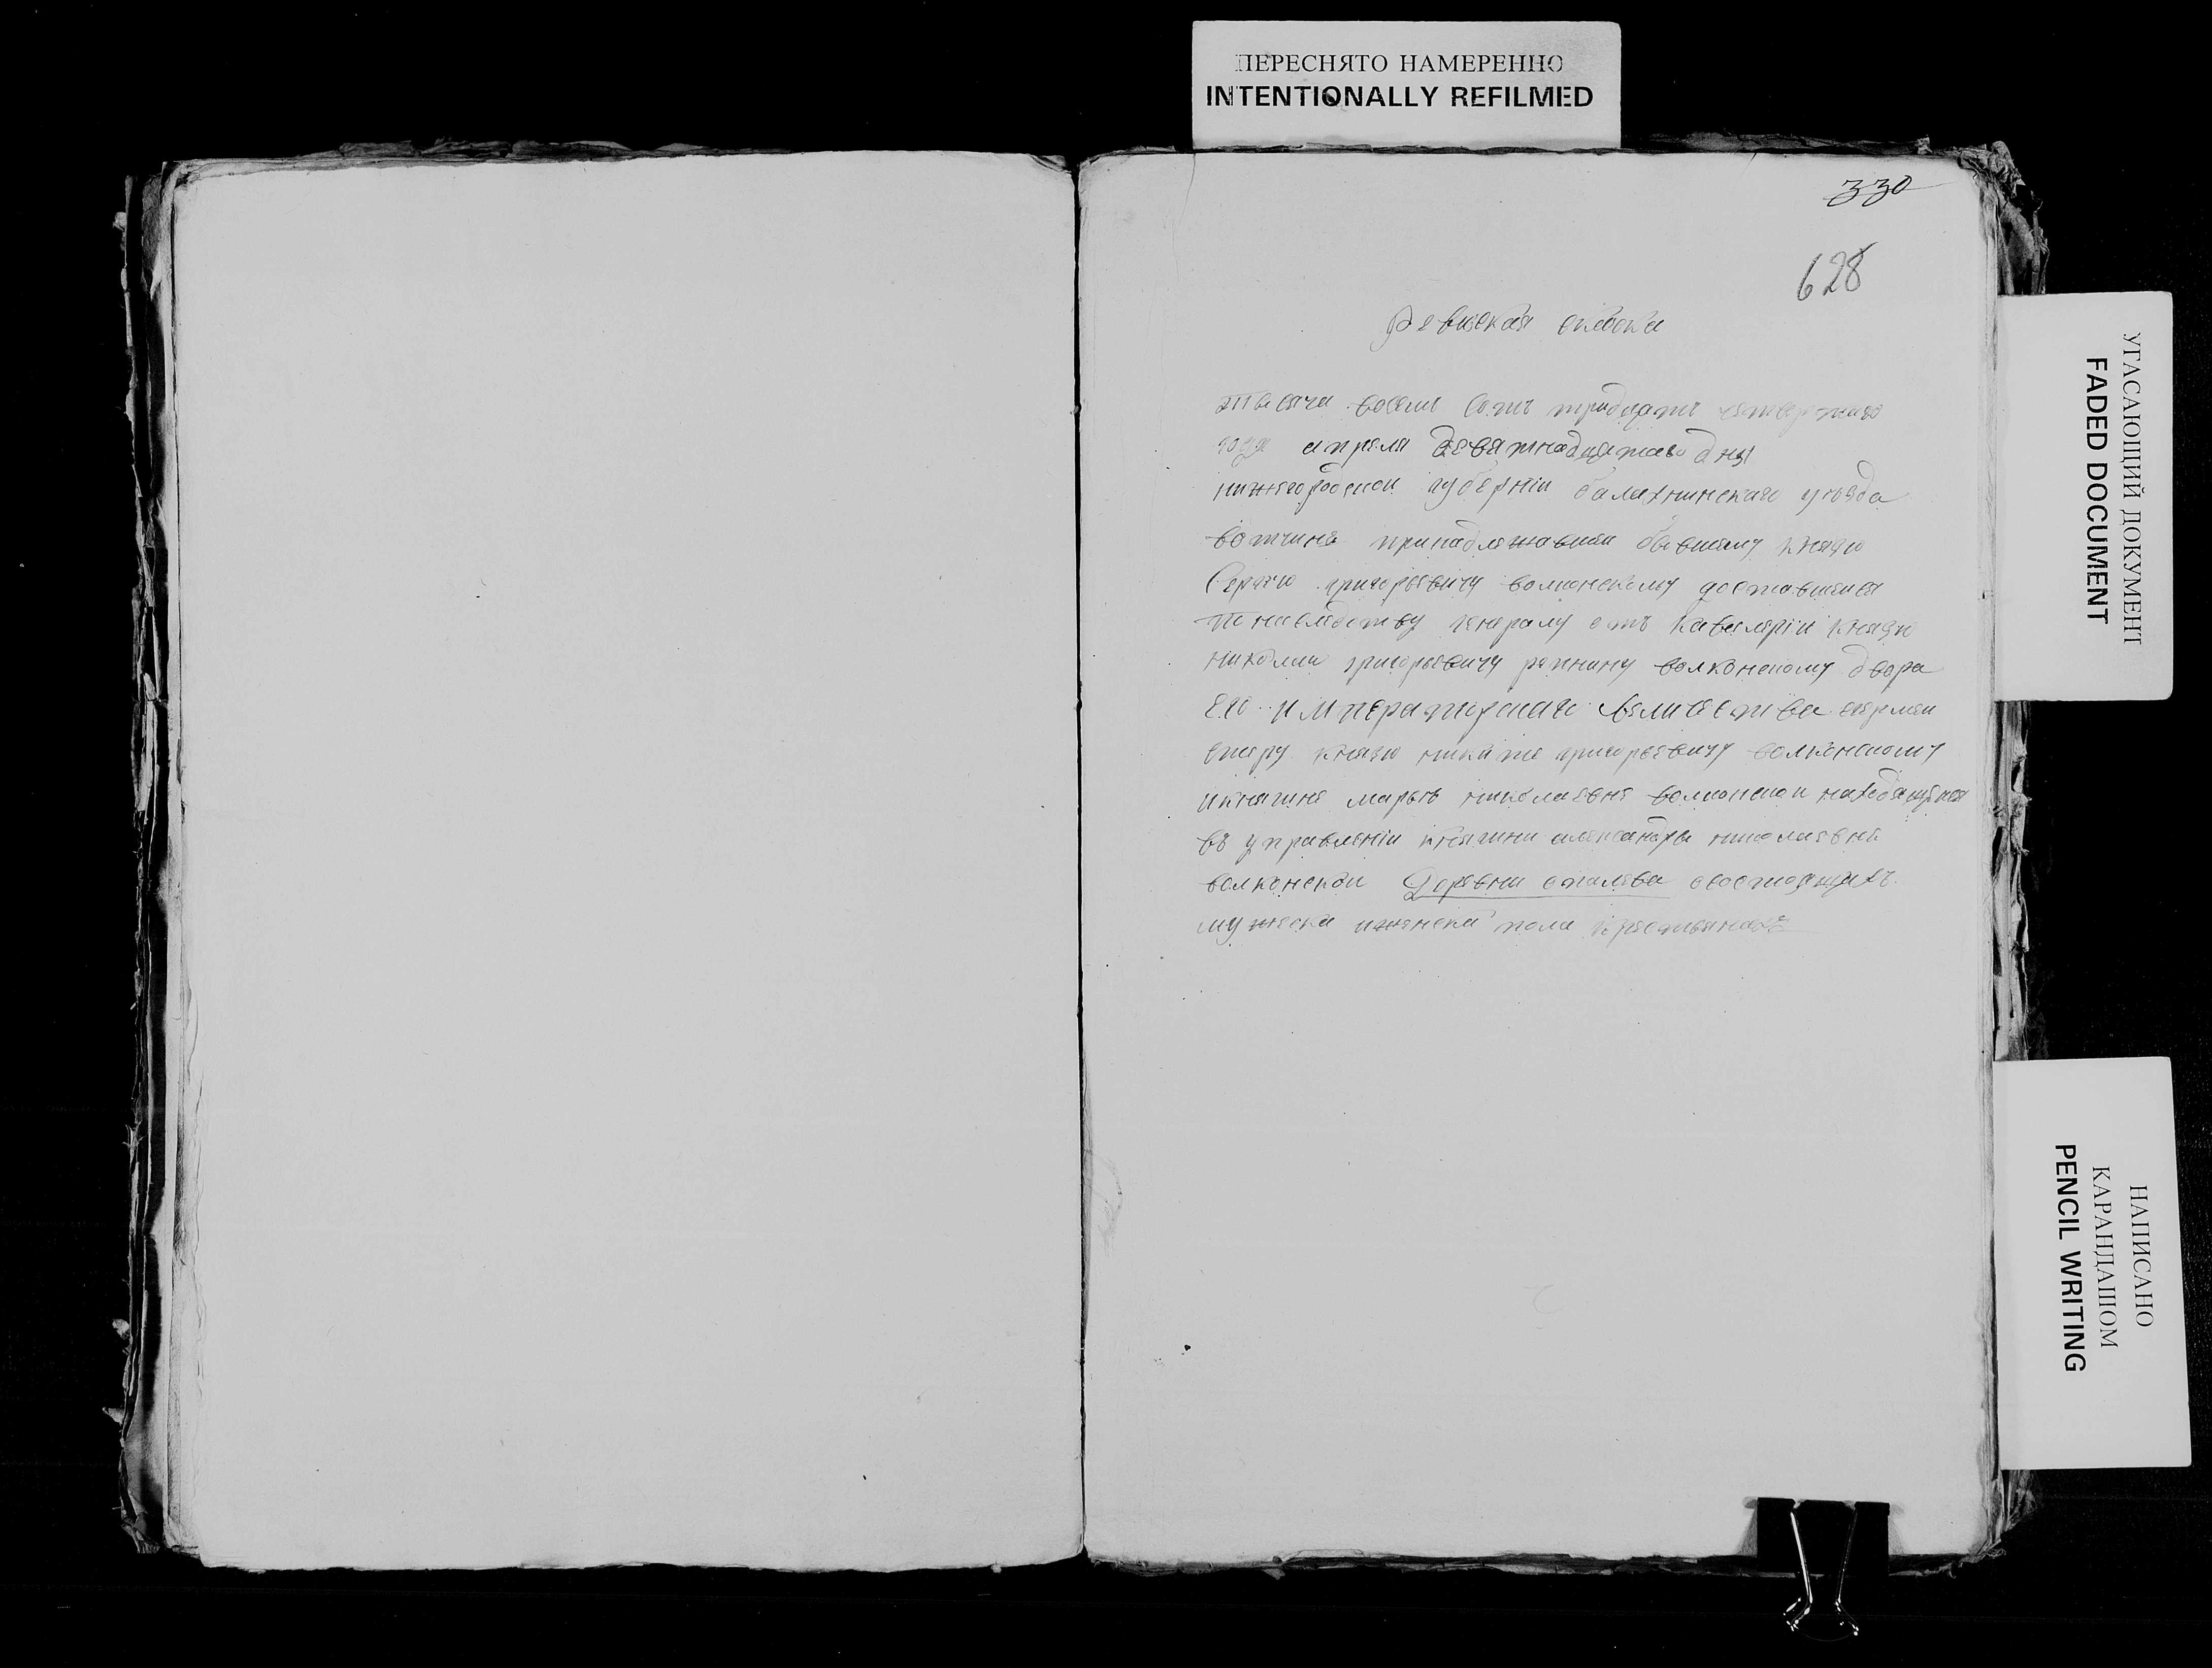 ПЕРЕСНЯТО НАМЕРЕННО
INTENTIONALLY REFILMED
330
628
Ревизская скаска
тысяча восемь сотъ тридцать четвертаго
года апреля девятнадцатаго дня
нижегородской губерніи балахнинскаго уезда
вотчине принадлежавшей бывшему князю
Сергею григорьевичу волконскому доставшейся
по наследству генералу отъ кавелеріи князю
николаю григорьевичу репнину волконскому двора
его императорскаго величества егермей
стеру князю никите григорьевичу волконскому
икнягине марье николаевне волконской находящейся
въ управленіи княгини александры николаевне
волконской Деревни состоящихъ
мужеска иженска пола крестьянахъ
УГАСАЮЩИЙ ДОКУМЕНТ
FADED DOCUMENT
НАПИСАНО
КАРАНДАШОМ
PENCIL WRITING